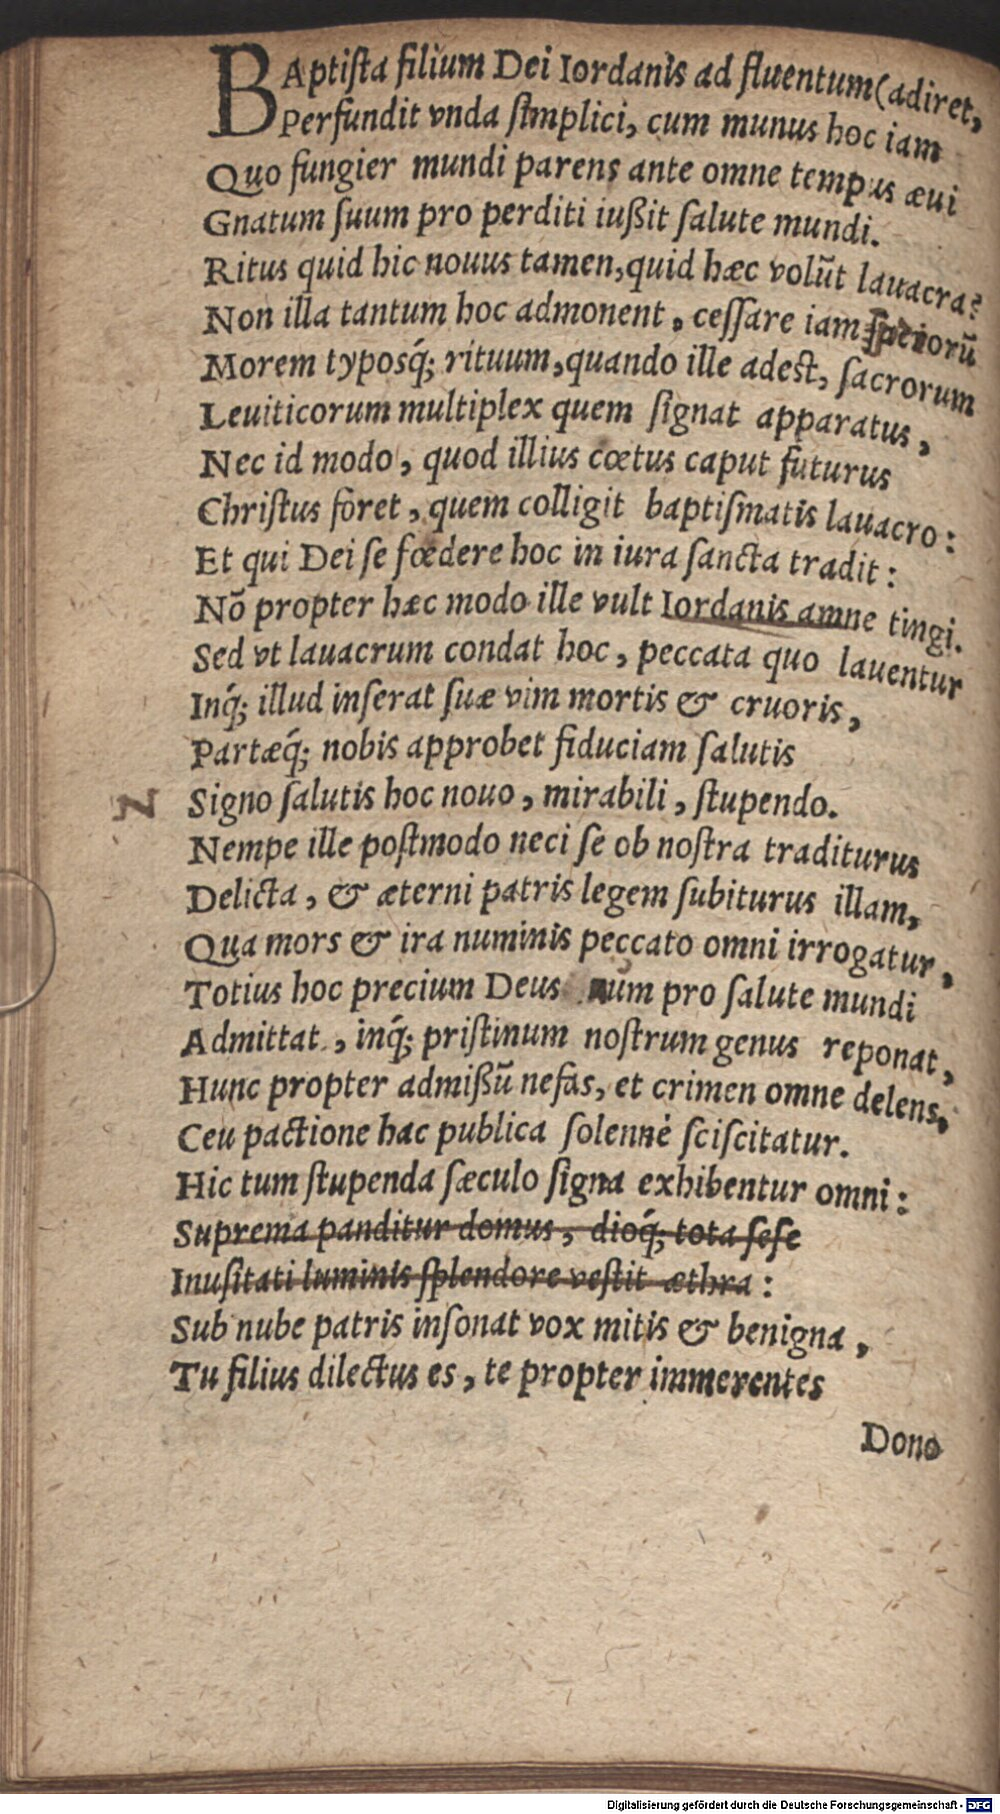 BAptiſta filium Dei Iordanis ad fluentum (adiret,
Perfundit vnda ſimplici, cum munus hoc iam
Quo fungier mundi parens ante omne tempus æui
Gnatum ſuum pro perditi iußit ſalute mundi.
Ritus quid hic nouus tamen, quid hæc volūt lauacra?
Non illa tantum hoc admonent, ceſſare iam
Morem typosq́; rituum, quando ille adest, ſacrorum
Leuiticorum multiplex quem ſignat apparatus,
Nec id modo, quod illius cœtus caput futurus
Chriſtus foret, quem colligit baptiſmatis lauacro:
Et qui Dei ſe fœdere hoc in iura ſancta tradit:
Nō propter hæc modo ille vult Iordanis amne tingi.
Sed vt lauacrum condat hoc, peccata quo lauentur
Inq́; illud inſerat ſuæ vim mortis & cruoris,
Partæq́; nobis approbet fiduciam ſalutis
Signo ſalutis hoc nouo, mirabili, ſtupendo.
Nempe ille poſtmodo neci ſe ob noſtra traditurus
Delicta, & æterni patris legem ſubiturus illam,
Qua mors & ira numinis peccato omni irrogatur,
Totius hoc precium Deus num pro ſalute mundi
Admittat, inq́; priſtinum noſtrum genus reponat,
Hunc propter admißū nefas, et crimen omne delens,
Ceu pactione hac publica ſolennè ſciſcitatur.
Hic tum ſtupenda ſæculo ſigna exhibentur omni:
Suprema panditur domus, dioq́; tota ſeſe
Inuſitati luminis ſplendore veſtit æthra:
Sub nube patris inſonat vox mitis & benigna,
Tu filius dilectus es, te propter immerentes
Dono
Digitalisierung gefördert durch die Deutsche Forschungsgemeinschaft - DFG